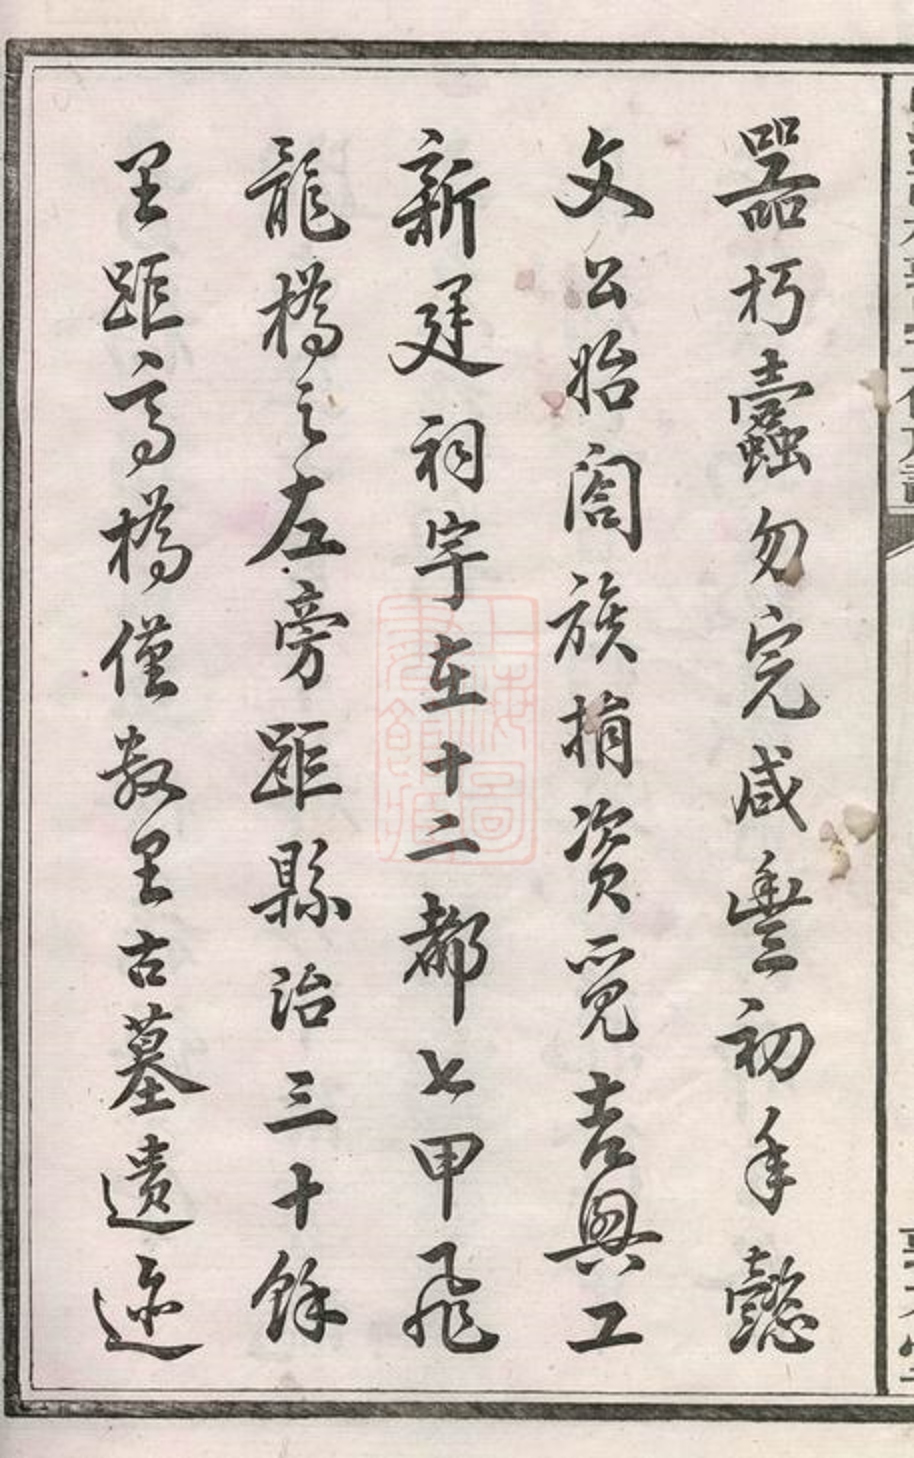 器朽蠹勿完咸豐初年懿
文公始閤族捐資覓吉興工
新建祠宇在十二都七甲飛
龍橋之左旁距縣治三十餘
里距高橋僅數里古墓遺迹
上海圖書館藏